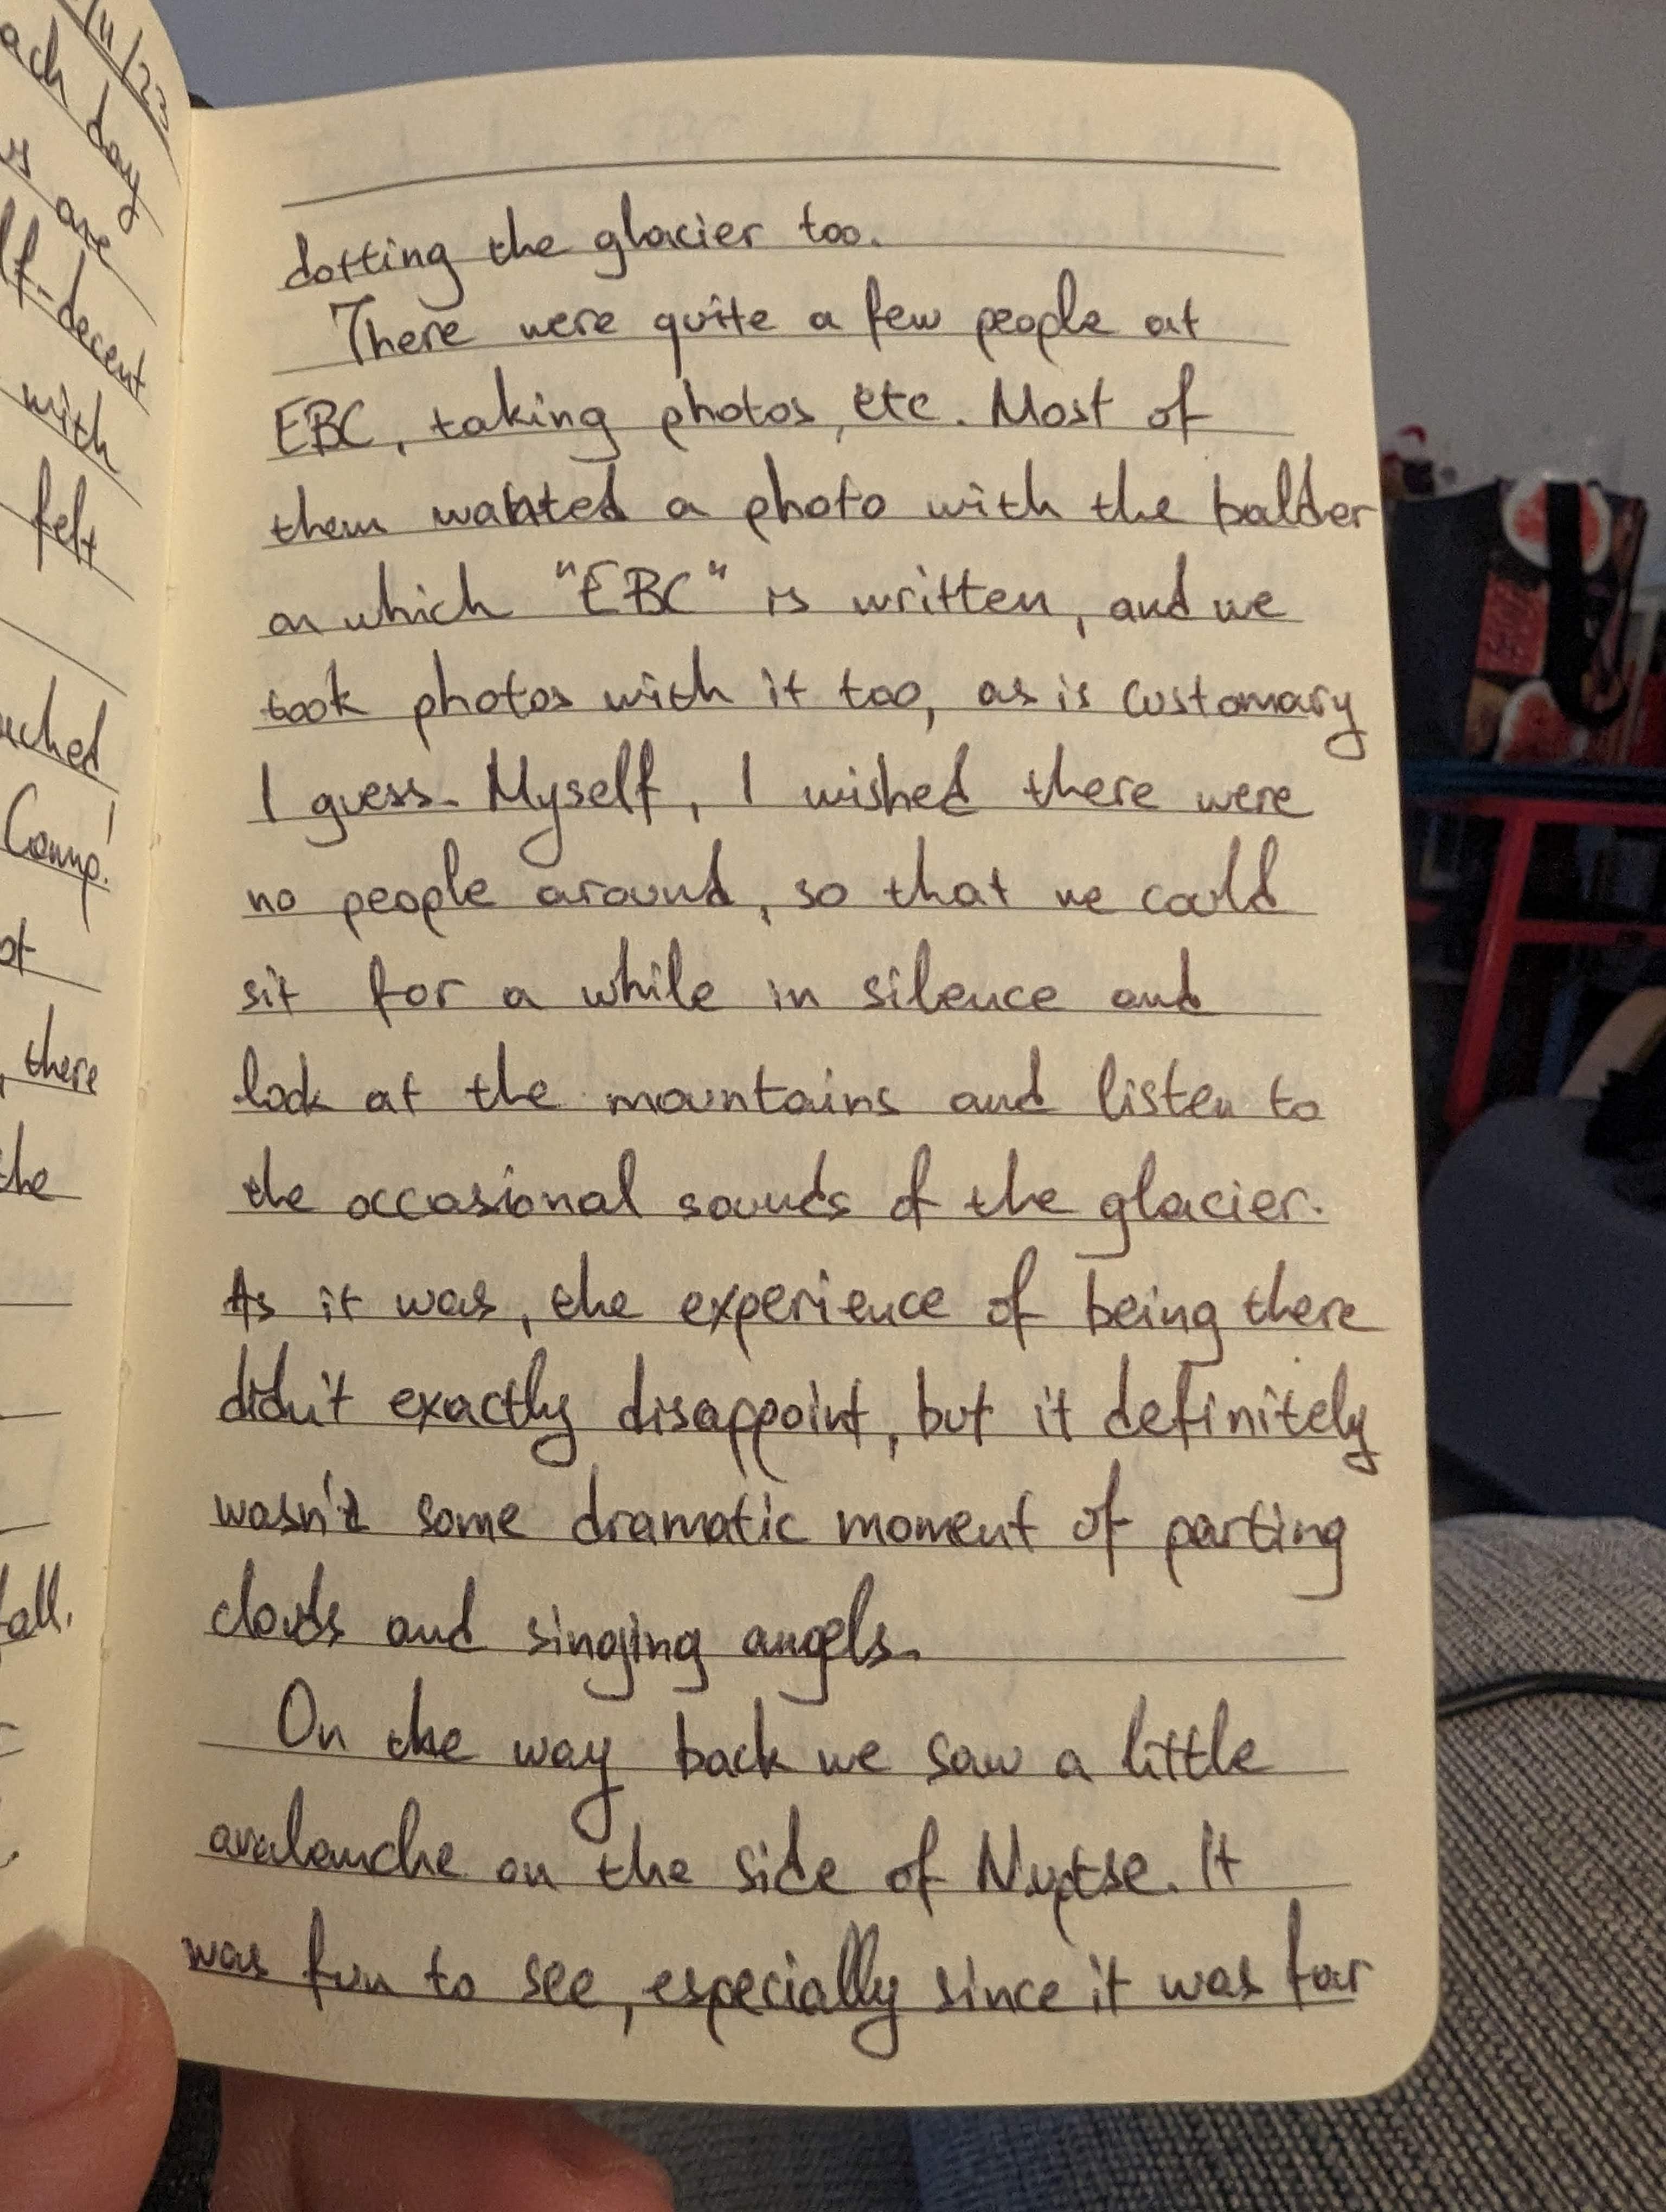 /11/23
ach day
us are
lf-decent
with
felt
ached
Camp!
ot
, there
the
fall.
dotting the glacier too.
There were quite a few people at
EBC, taking photos, etc. Most of
them wanted a photo with the balder
on which "EBC" is written, and we
took photos with it too, as is customary
I guess. Myself, I wished there were
no people around, so that we could
sit for a while in silence and
look at the mountains and listen to
the occasional sounds of the glacier.
As it was, the experience of being there
didn't exactly disappoint, but it definitely
wasn't some dramatic moment of parting
clouds and singing angels.
On the way back we saw a little
avalanche on the side of Nuptse. It
was fun to see, especially since it was far